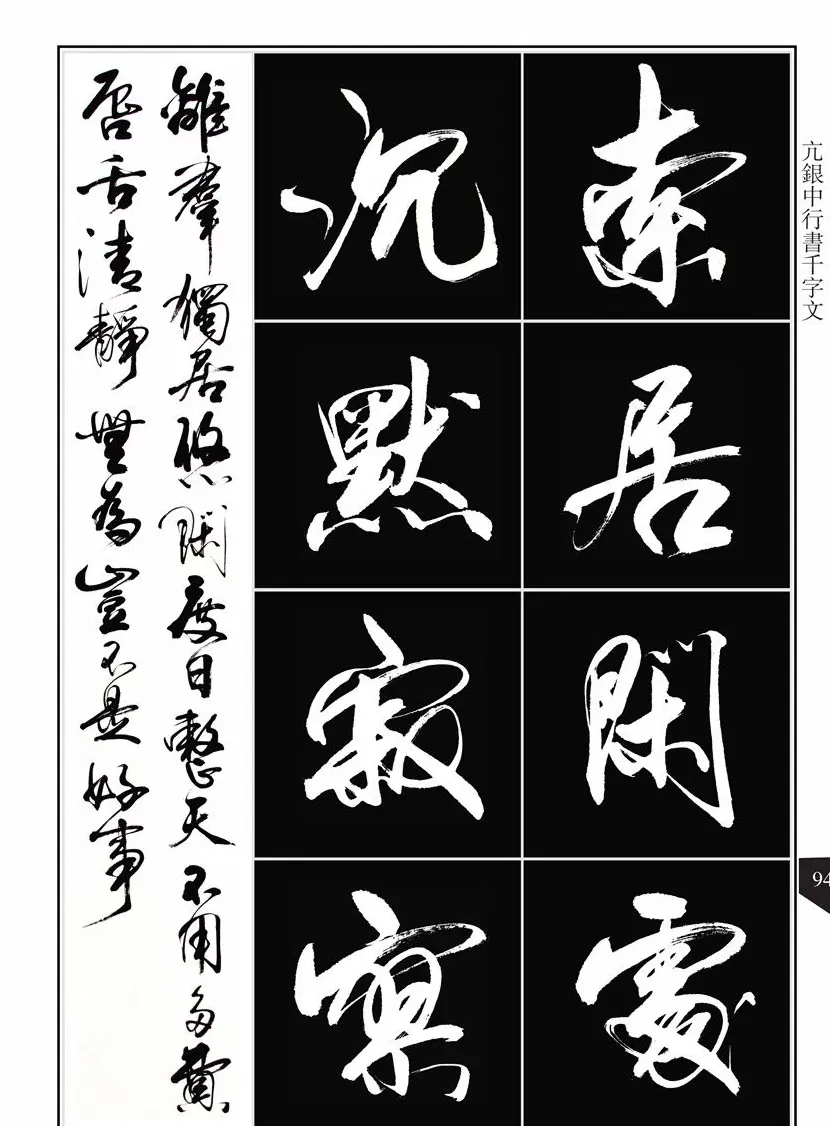 亢銀中行書千字文
索居閑處
沉默寂寥
離群獨居悠閑度日整天不用多費
唇舌清靜無為豈不是好事
94